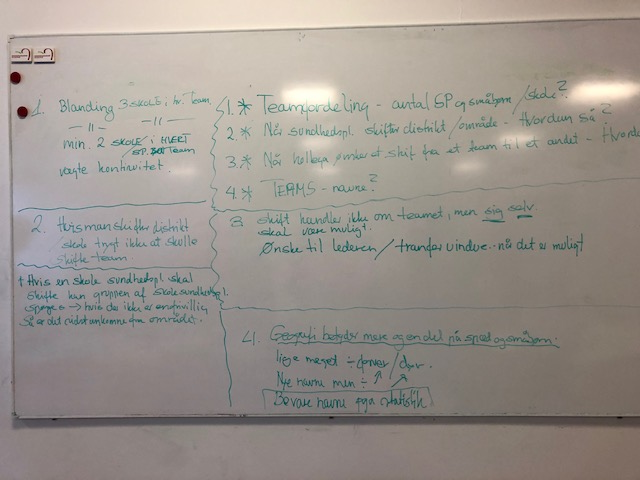 1. Blanding 3 SKOLE, hr. Team
— 11 — — 11 —
min. 2 SKOLE / i HVERT
SP. Team
vægte kontinuitet.
2. Hvis man skifter distrikt
/ skole trygt ikke at skulle
skifte team
+ Hvis en skole sundhedspl. skal
skifte kan gruppen af skolesundhedspl.
spørges → hvis der ikke er en frivillig
så er det sidst ankomne fra området.
1.* Teamfordeling - antal SP og småbørn / skole?
2.* Når sundhedspl. skifter distrikt / område - Hvordan så?
3.* Når kollega ønsker et skift fra et team til et andet - Hvorda
4.* TEAMS - navne?
3 skift handler ikke om teamet, men sig selv
skal være muligt.
Ønske til lederen / transfer vindue - når det er muligt
4. Geografi betyder mere og en del på spæd og småbørn.
lige meget ÷ farver / dyr.
Nye navne men ÷
Bevare navne pga statistik